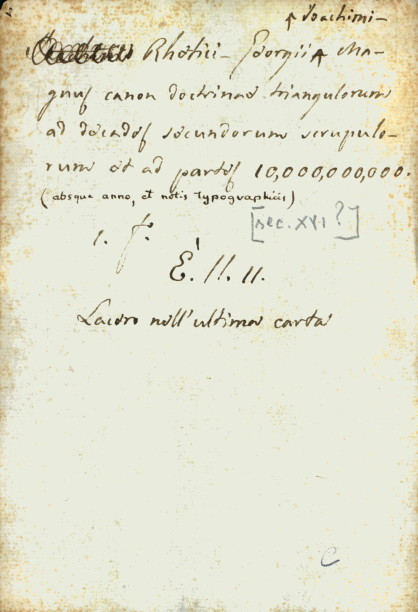 Joachimi-
Rhetici- Georgii Ma-
gnus canon doctrinae triangulorum
ad decades secundorum scrupulo-
rum et ad partes 10,000,000,000.
(absque anno, et notis typographicis)
[sec. XVI?]
1. f.
E. II. 11.
Lacero nell'ultima carta
C